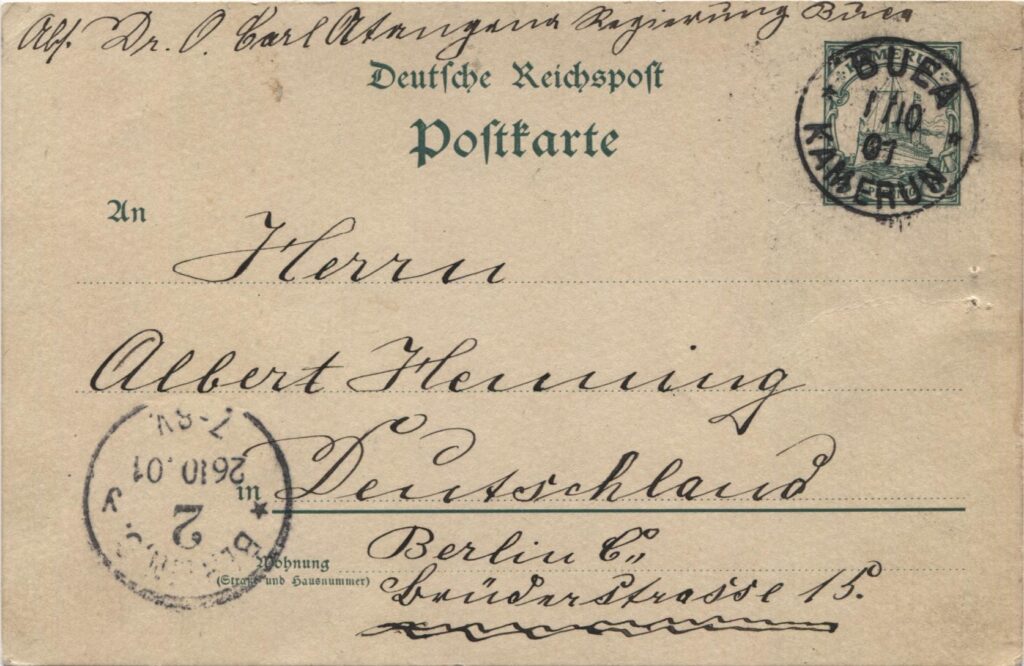 Abs. Dr. O. Carl Atangana Regierung Buea
Deutsche Reichspost
Postkarte
KAMERUN
BUEA
1/10
01
KAMERUN
An
Herrn
Albert Henning
in Deutschland
Wohnung
(Straße und Hausnummer)
Berlin C.,
Brüderstrasse 15.
BERLIN, C.
2
26 10. 01
7-8V.